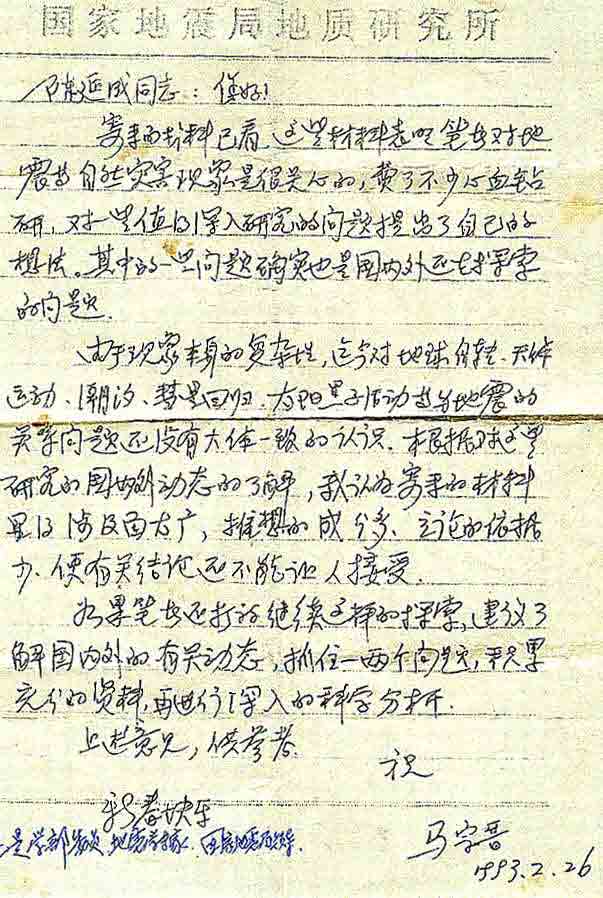 国家地震局地质研究所
陈延成同志：您好!
寄来的材料已看，这些材料表明笔者对地
震与自然灾害现象是很关心的，费了不少心血钻
研，对一些值得深入研究的问题提出了自己的
想法。其中的一些问题确实也是国内外正在探索
的问题。
由于现象本身的复杂性，迄今对地球自转、天体
运动、潮汐、彗星回归、太阳黑子活动与地震的
关系问题还没有大体一致的认识。根据对这些
研究的国内外动态的了解，我认为寄来的材料
里 涉及面太广，推想的成分多、立论的依据
少、使有关结论还不能让人接受。
如果笔者还打算继续这样的探索，建议了
解国内外的有关动态，抓住一两个问题，积累
充分的资料，再进行深入的科学分析。
上述意见，供参考。
祝
新春快乐
马宗晋
1993.2.26
是学部委员 地震